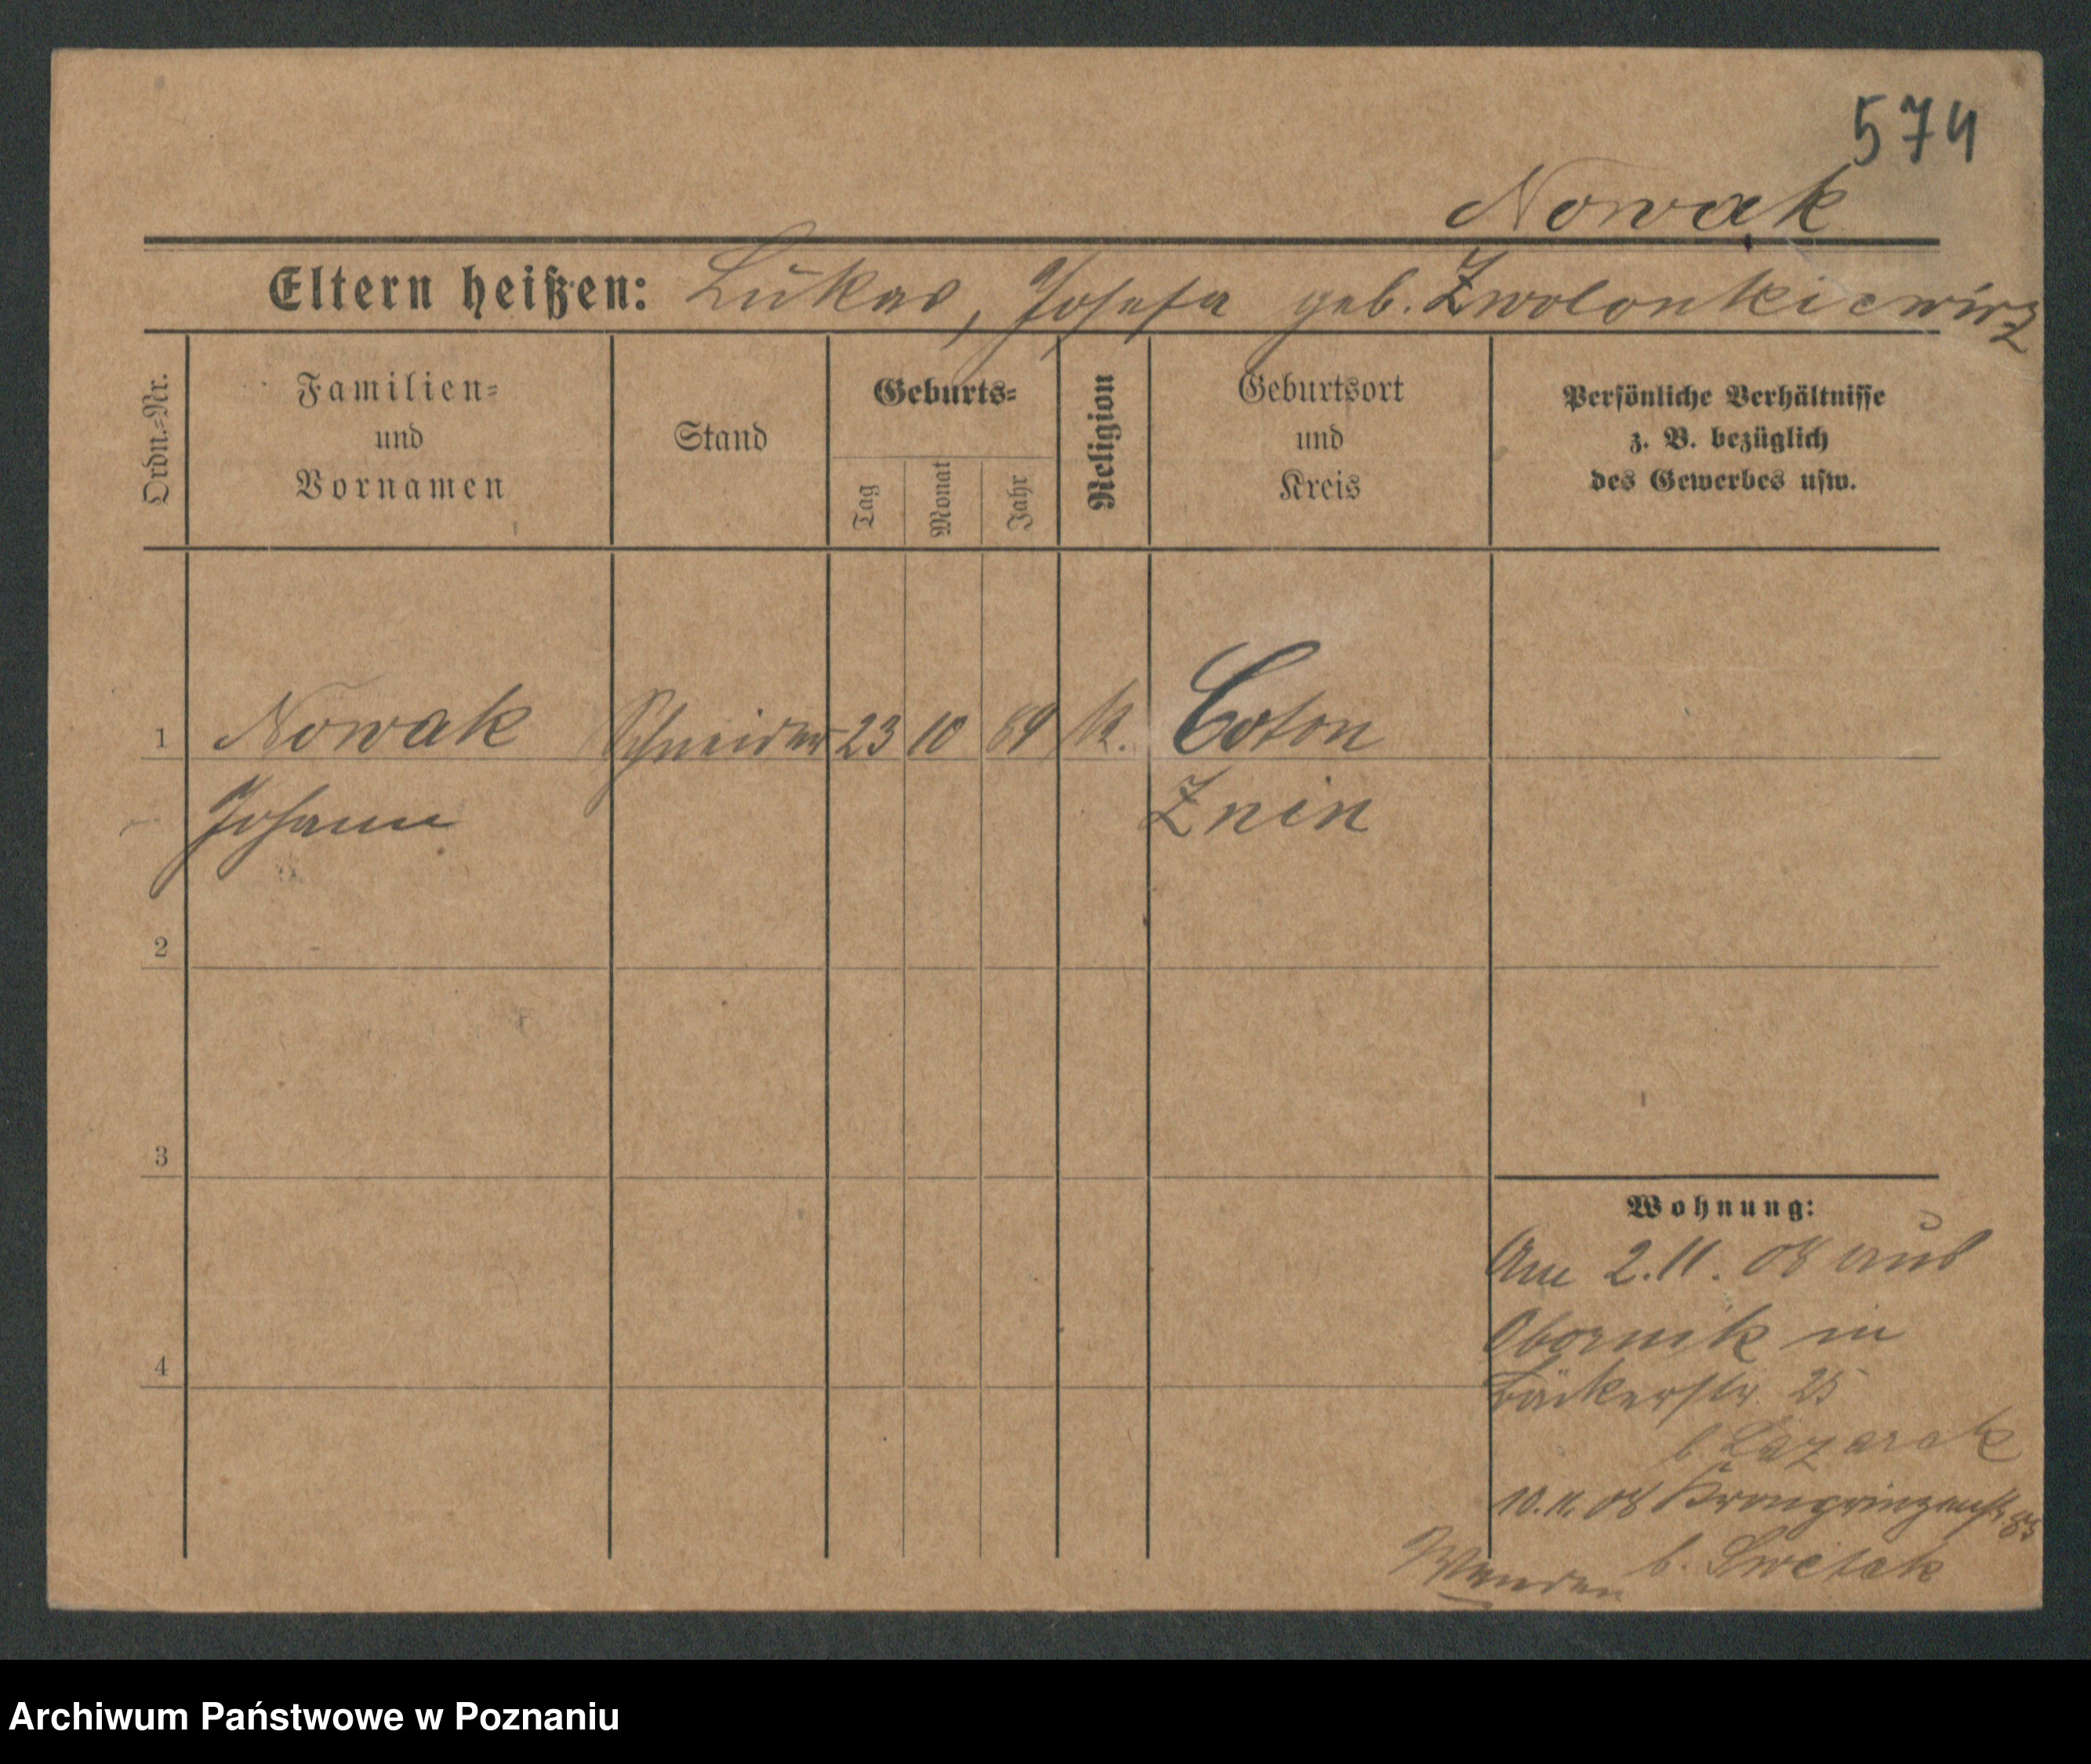 574
Nowak
Eltern heißen: Lukas, Josefa geb. Zwolonkiewicz
Ordn.-Nr.
Familien-
und
Vornamen
Stand
Geburts-
Tag
Monat
Jahr
Religion
Geburtsort
und
Kreis
Persönliche Verhältnisse
z. B. bezüglich
des Gewerbes usw.
1 Nowak Schneider 23 10 89 k. Coton
Johann Znin
2
3
4
Wohnung:
Am 2.11.08 aus
Obornik in
Bäckerstr. 25
b Kazarak
10.11.08 Kronprinzenstr. 85
b. Swetak
Wenden
Archiwum Państwowe w Poznaniu